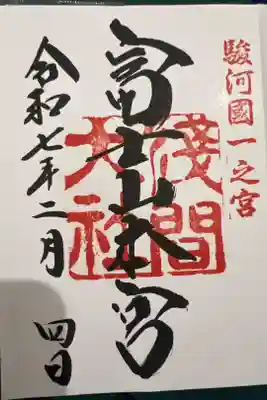 駿河國一之宮
富士山本宮
淺間大社
令和七年二月
四日